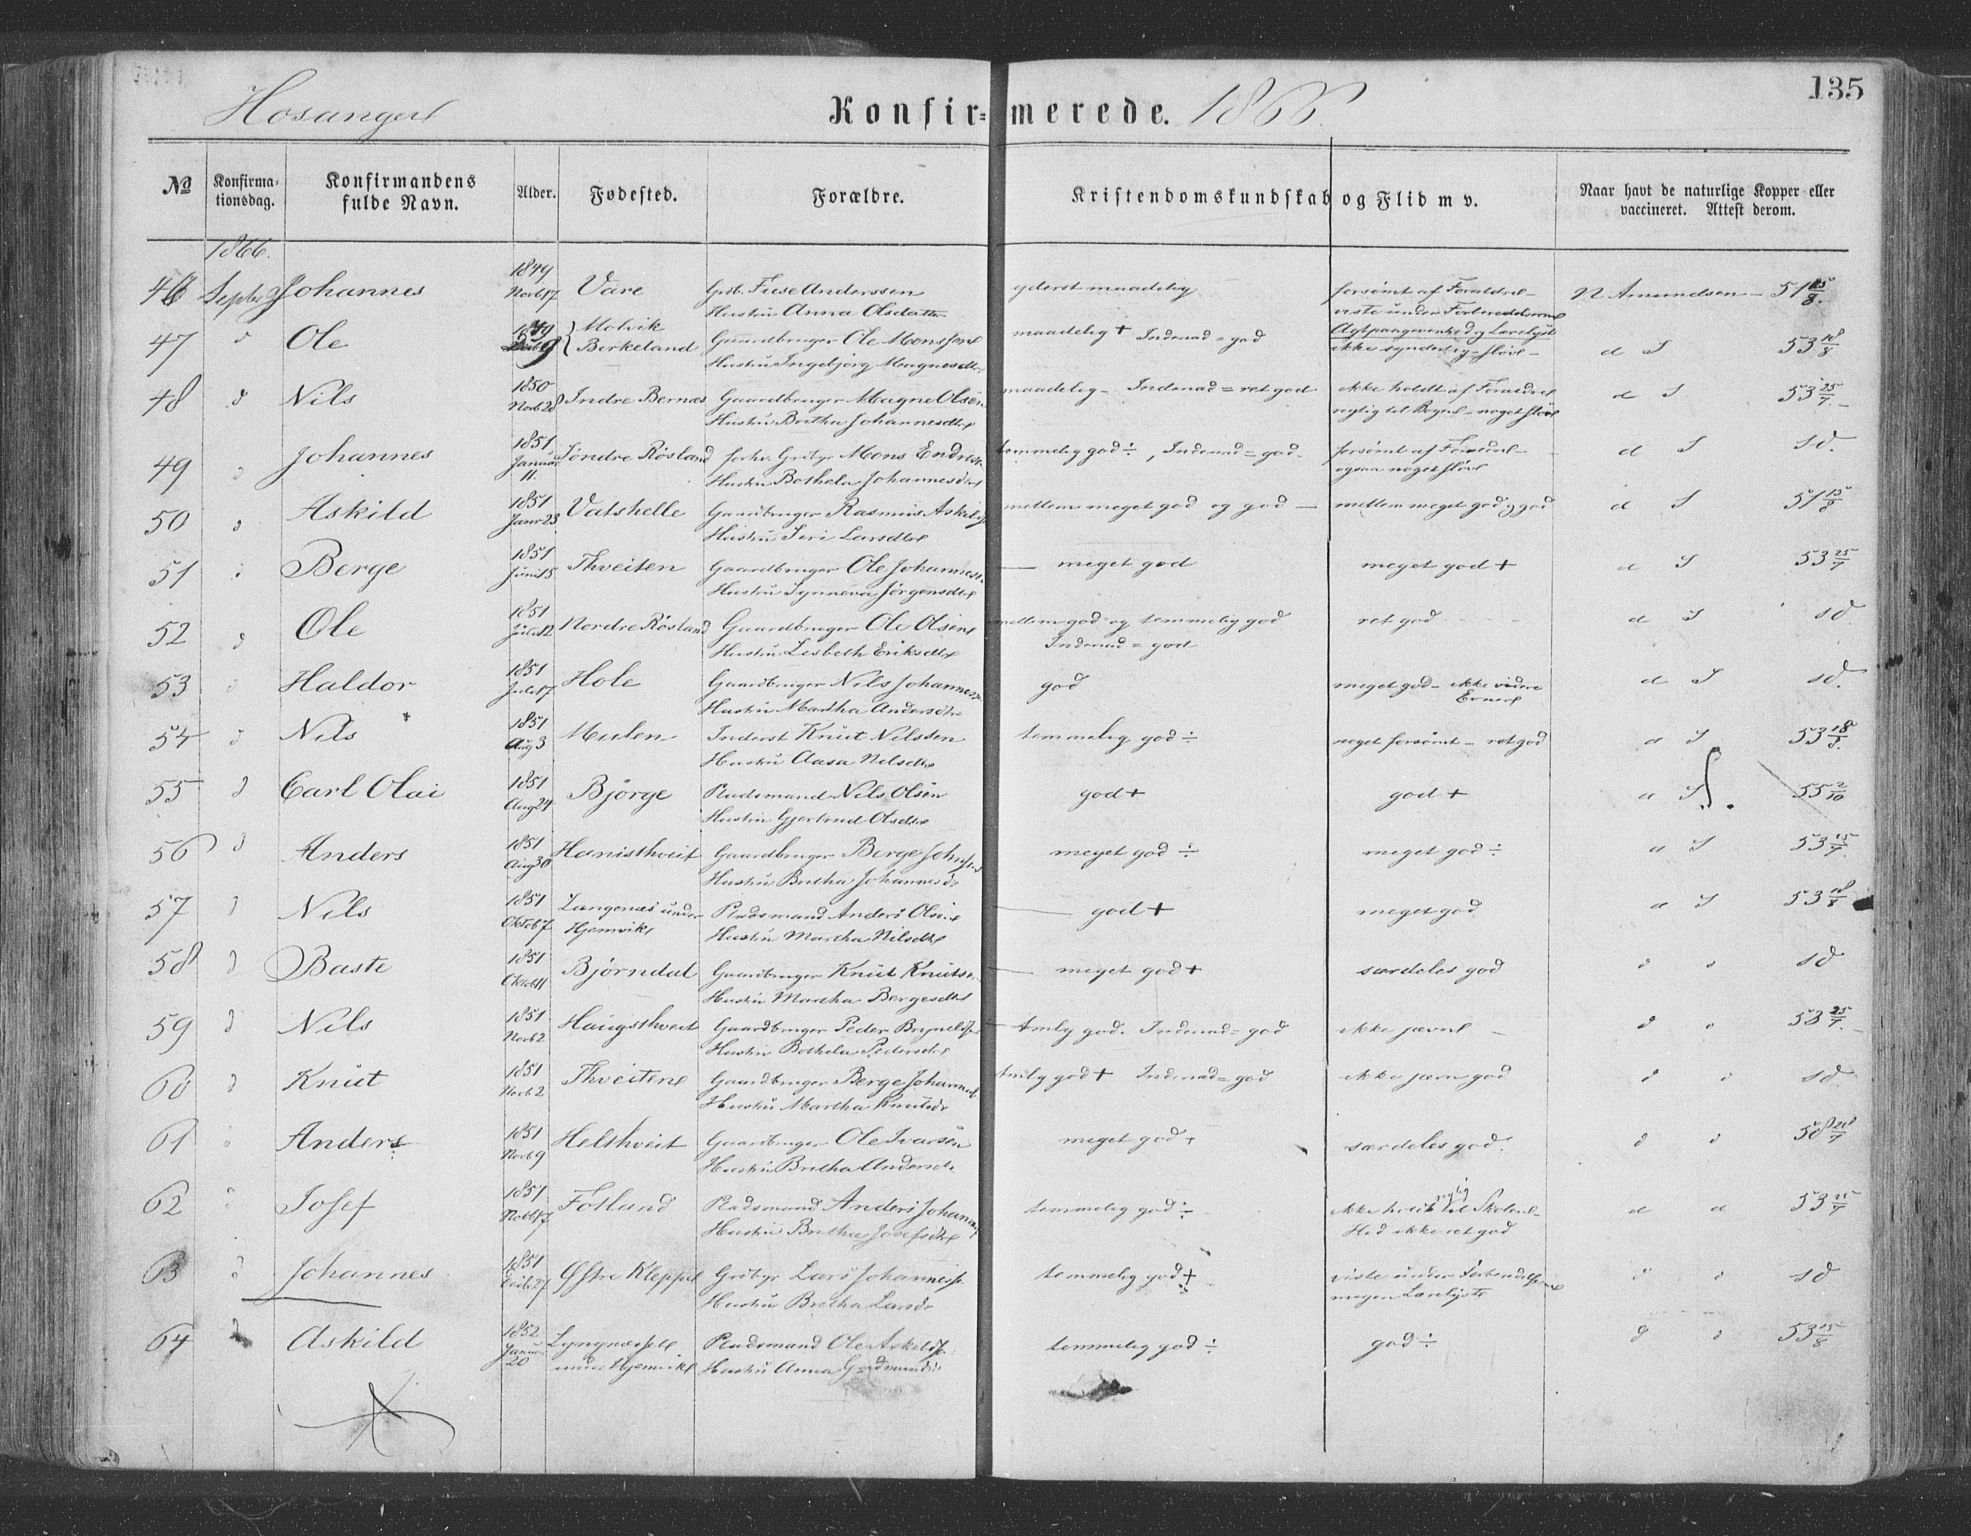 135
Hosanger
Konfir= merede. 1866.
No
Konfirma-
tionsdag.
Konfirmandens
fulde Navn.
Alder.
Fødested.
Forældre.
Kristendomskundskab og Flid m v.
Naar havt de naturlige Kopper eller
vaccineret. Attest derom.
1866.
46 Septbr Johannes 1849 Novb 17 Vare
Anderssen
Hustru Anna Olsdatter
yderst maadelig
forsømt af Forældre
viste under Forberedelsen
N Amundsen 51 15/8.
47 d Ole 1849 9 Molvik
Birkeland
Gaardbruger Ole Monssen
Hustru Ingebjörg Magnesdtr
maadelig + Indenad = god
ikke synderlig sløv
d S 53 18/8
48 d Nils 1850 Novb 28 Indre Bernæs
Gaardbruger Magne Olsen
Hustru Britha Johannesdtr
maadelig Indenad = ret god
ikke holdt af Forældre
noget sløv
d S 53 25/7.
49 d Johannes 1851 Januar 11. Søndre Røsland
forhv. Mons Endres
Hustru Bothela Johannesdtr
temmelig god ÷, Indenad = god.
forsømt af
ogsaa noget sløv
d S s d.
50 d Askild 1851 Janr 23 Vatshelle
Gaardbruger Rasmus Askilds
Hustru Siri Larsdtr
mellem meget god og god
mellem meget god og god
d S 51 15/8
51 Berge 1851 Juni 15 Thveiten
Gaardbruger Ole Johannes
Hustru Synneva Jörgensdtr
meget god
meget god +
d S 53 25/7
52 d Ole 1851 Juli 12 Nordre Røsland
Gaardbruger Ole Olsen
Hustru Lisbeth Eriksdtr
mellem god og temmelig god
Indenad = god
ret god
d S s d.
53 d Haldor 1851 Juli 17 Hole
Gaardbruger Nils Johanness
Hustru Martha Andersdtr
god
meget god ikke videre
Evner
d S s d.
54 d Nils 1851 Aug 3 Mulen
Inderst Knut Nilssen
Hustru Aasa Nilsdtr
temmelig god ÷
noget forsømt ret god
d S 53 18/8
55 d Carl Olai 1851 Aug 24 Björge
Pladsmand Nils Olsen
Hustru Gjertrud Olsdtr
god +
god +
d S 55 2/10
56 d Anders 1851 Aug 30
Gaardbruger Berge Johns
Hustru Britha Johannesd
meget god ÷
meget god ÷
d S 53 15/7.
57 d Nils 1851 Oktob 7 Langenæs under
Hjemvik
Pladsmand Anders Olsen
Hustru Martha Nilsdtr
god +
meget god
d S 53 18/8
58 d Baste 1851 Oktob 11 Björndal
Gaardbruger Knut Knuts
Hustru Martha Bergesdtr
meget god +
særdeles god
d d s d
59 d Nils 1851 Novb 2 Haugsthveit
Gaardbruger Peder Brynilds
Hustru Bothela Pedersdtr
tmlg god. Indenad = god
ikke jævn
d d 53 25/7.
60 d Knut 1851 Novb 2 Thveiten
Gaardbruger Berge Johannes
Hustru Martha Knutsd
tmlg god + Indenad = god
ikke jævn god
d d s d.
61 Anders 1851 Novb 9 Helthveit
Gaardbruger Ole Ivarsen
Hustru Britha Andersd
meget god +
særdeles god.
d d
62 Josef 1851 Novb 17 Fotland
Pladsmand Anders Johannes
Hustru Britha Josefsdtr
temmelig god ÷
ikke holdt til Skolen
Flid ikke ret god
d d 53 25/7
63 d Johannes 1851 27 Østre Kleppe
Grdbgr Lars Johanness
Hustru Britha Larsd
temmelig god +
viste under Forberedelsen
megen Lærelyst
d d s d
64 d Askild 1852 Januar 20
under Hjemvik
Pladsmand Ole Askilds
Hustru Anna Gudmundsd
temmelig god ÷
god ÷
d d 53 15/8